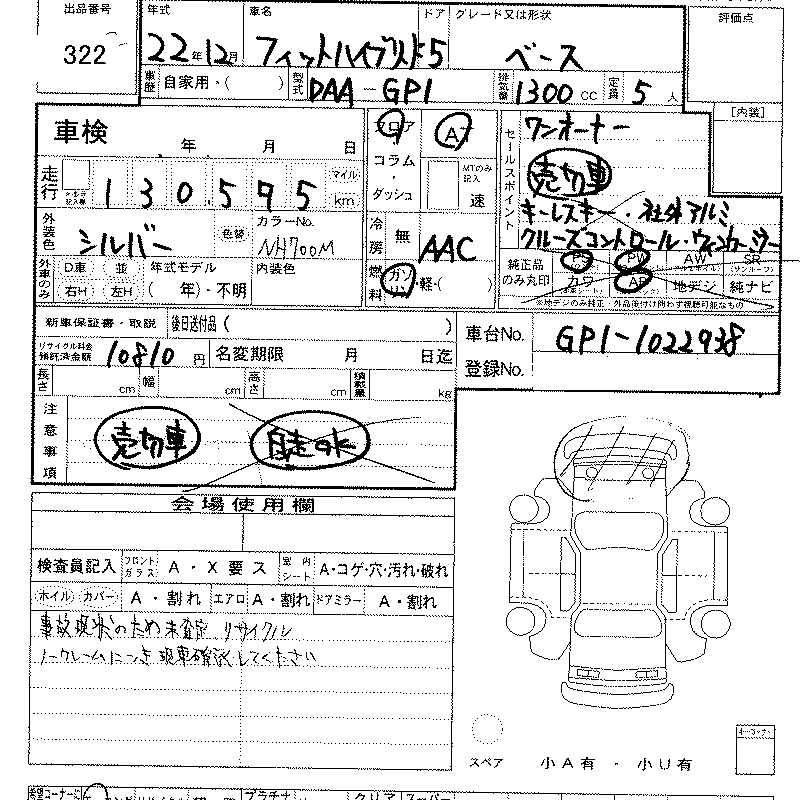 出品番号 年式 車名 ドア グレード又は形状 評価点
322 22年12月 フィットハイブリッド 5 ベース
車歴 自家用・( ) 型式 DAA-GP1 排気量 1300 CC 定員 5 人
[内装]
車検 年 月 日 フロア AT セールスポイント ワンオーナー
走行 メーター 記入欄 130,595 マイル km コラム・ダッシュ MTのみ記入 速 売切車
キーレスキー・社外アルミ
外装色 シルバー 色替 カラーNo. NH700M 冷房 無 AAC クルーズコントロール・ウィンカーミラー
外車のみ D車 並 年式モデル 内装色 燃料 ガソリン・軽・( ) 純正品のみ丸印 PS PW AW SR
右H 左H ( 年)・不明 カワ AB 地デジ 純ナビ
※地デジのみ純正・外品後付け問わず視聴可能なもの
新車保証書・取説 後日送付品( ) 車台No. GP1-1022938
リサイクル料金預託済金額 10810 円 名変期限 月 日迄 登録No.
長さ cm 幅 cm 高さ cm 積載量 kg
注意事項 売切車 自走OK
会場使用欄
検査員記入 フロントガラス A・X要ス 室内シート A・コゲ・穴・汚れ・破れ
ホイル カバー A・割れ エアロ A・割れ ドアミラー A・割れ
事故現状のため未査定 リサイクル
ノークレームにつき現車確認してください
スペア 小A有 ・ 小U有
希望コーナーに プラチナ クリア スーパー